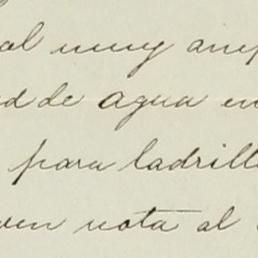 al muy amp
d de agua en
para ladrill
ven nota al